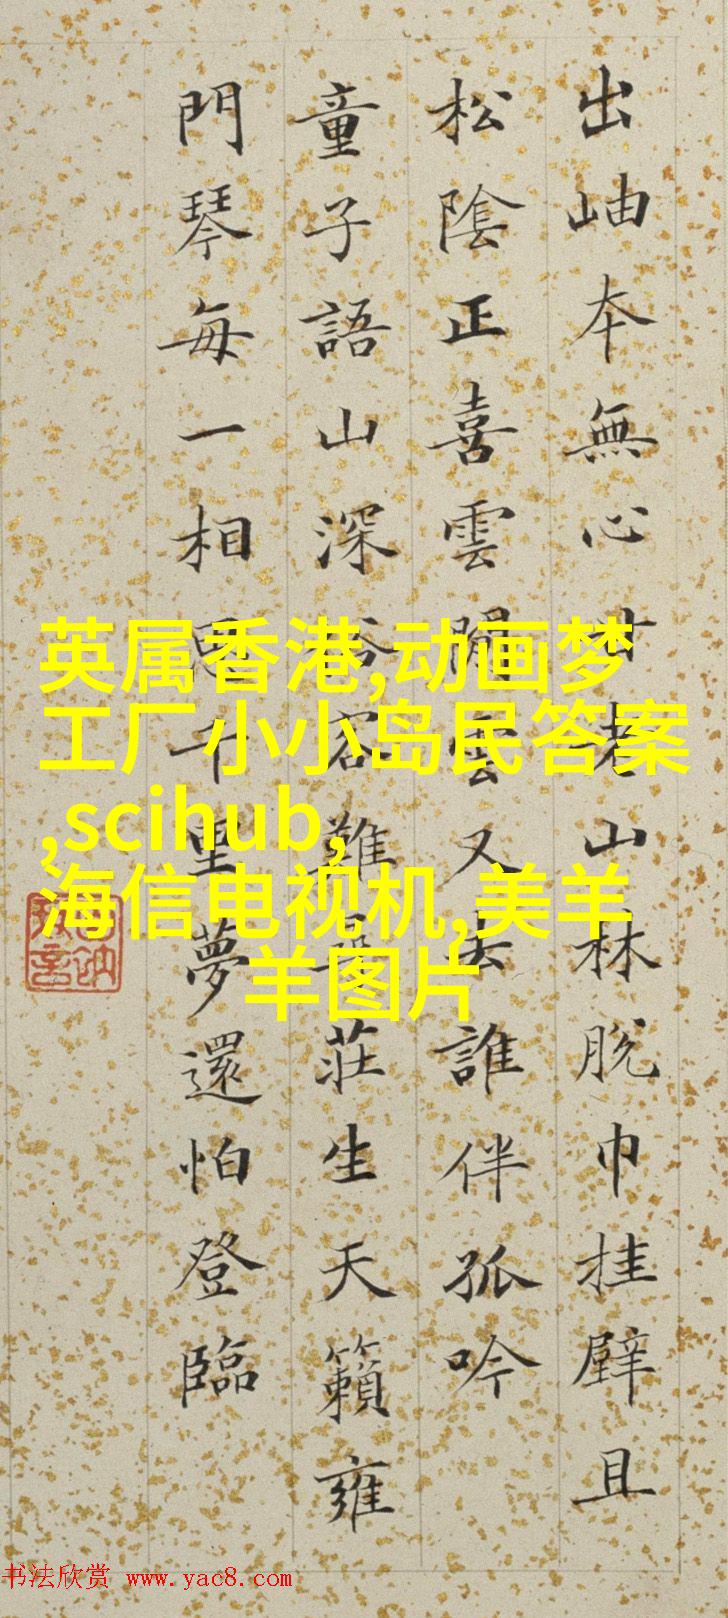 出岫本無心老山林脫巾挂壁且
松陰正喜雲雲又去誰伴孤吟
童子語山深難莊生天籟雍
門琴每一相思千里夢還怕登臨
英属香港,动画梦
工厂小小岛民答案
,scihub,
海信电视机,美羊
羊图片
书法欣赏 www.yac8.com